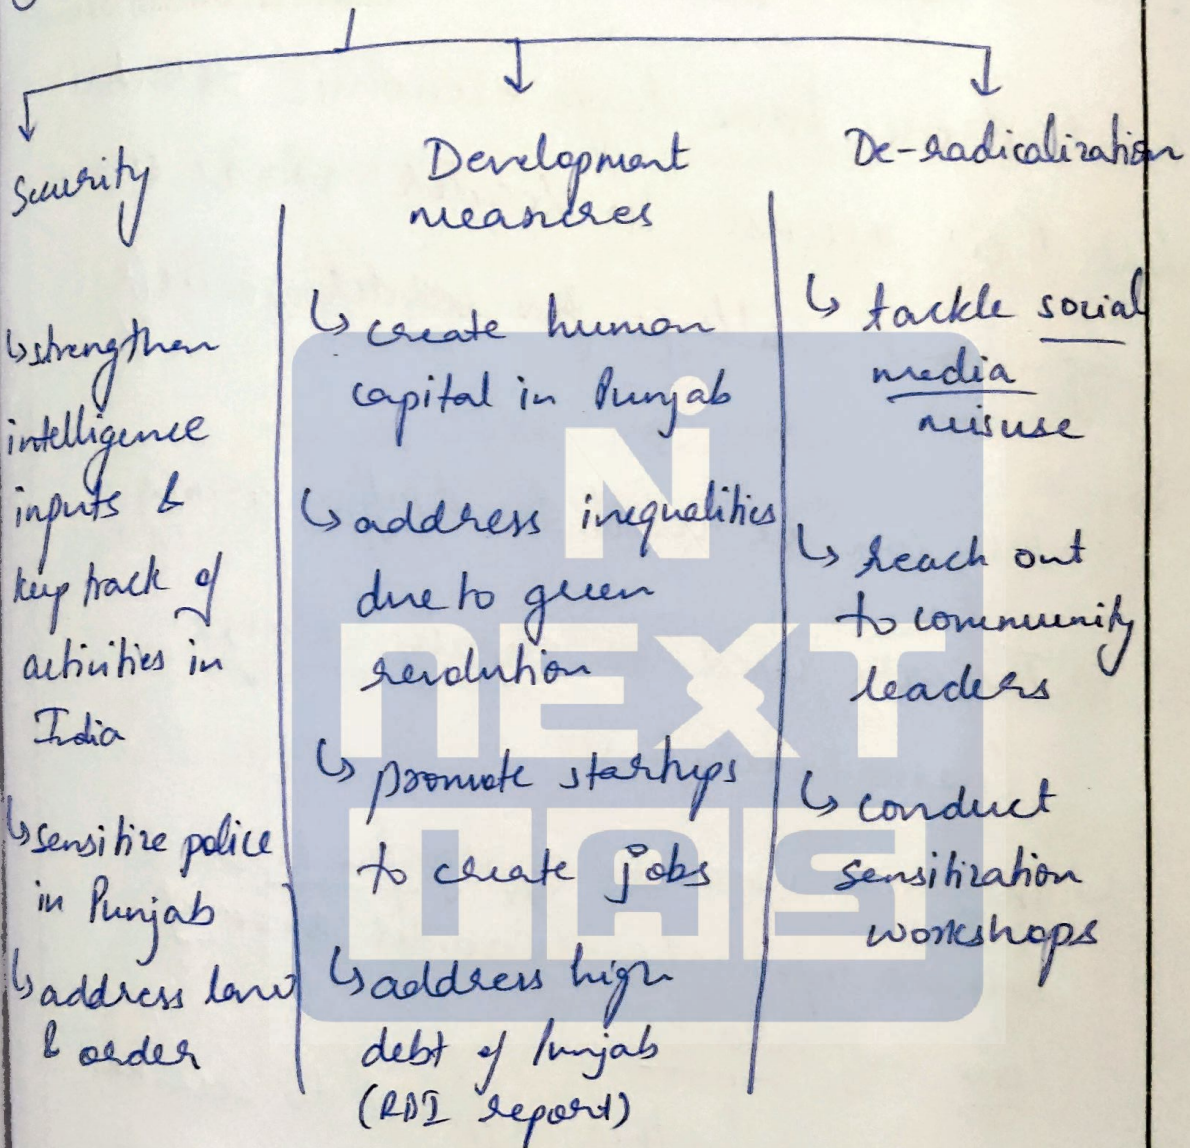 Security
↳ strengthen
intelligence
inputs &
keep track of
activities in
India
↳ sensitize police
in Punjab
↳ address law
& order
Development
measures
↳ create human
capital in Punjab
↳ address inequalities
due to green
revolution
↳ promote startups
to create jobs
↳ address high
debt of Punjab
(RBI report)
De-radicalization
↳ tackle social
media
misuse
↳ reach out
to community
leaders
↳ conduct
sensitization
workshops
N
NEXT
IAS